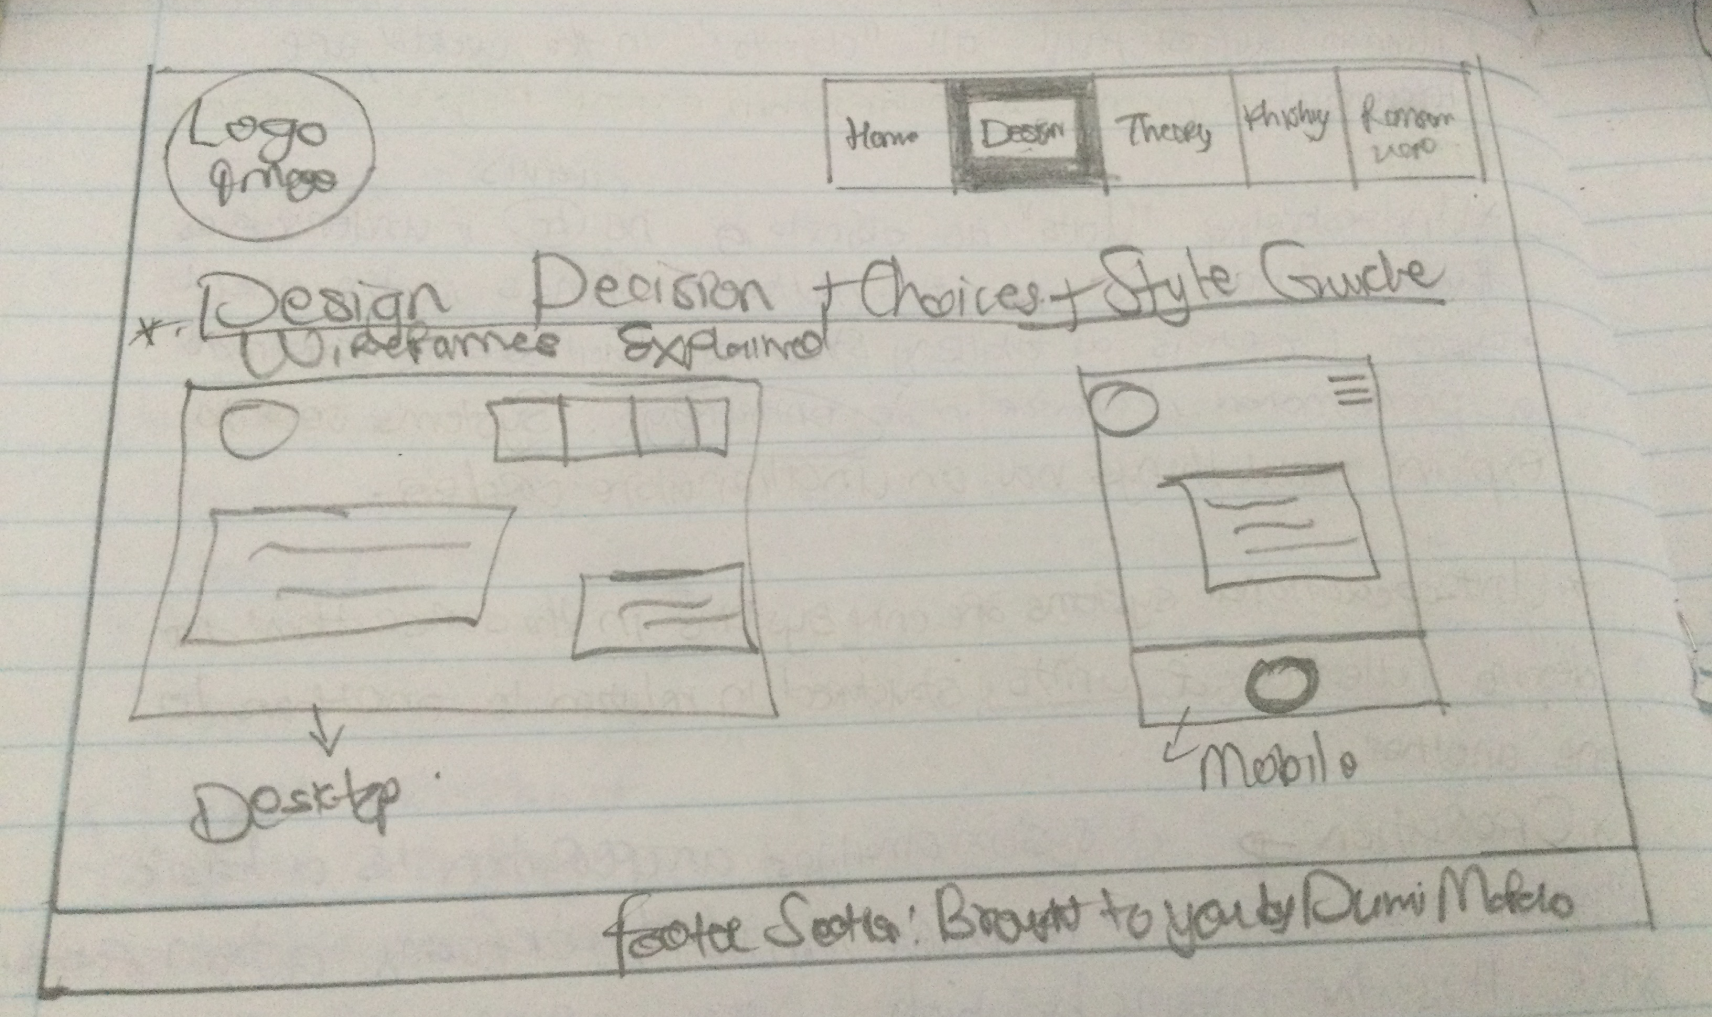 Logo
Image
Home
Design
Theory
Phishing
Ransom
ware
*. Design Decision + Choices + Style Guide
Wireframes Explained
Desktop
Mobile
Footer Section: Brought to you by Dumi